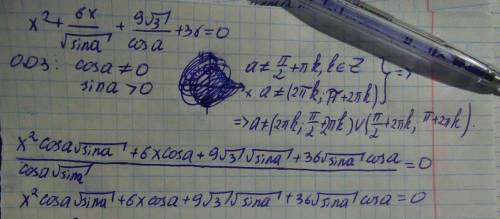 x² + 6x/√sina + 9√3/cosa + 36 = 0
ОДЗ: cosa ≠ 0
sina > 0
a ≠ π/2 + πk, k ∈ Z
a ≠ (2πk; π + 2πk) } =>
=> a ≠ (2πk; π/2 + 2πk) ∪ (π/2 + 2πk, π + 2πk).
(x² cosa √sina + 6x cosa + 9√3 √sina + 36 √sina cosa) / (cosa √sina) = 0
x² cosa √sina + 6x cosa + 9√3 √sina + 36 √sina cosa = 0